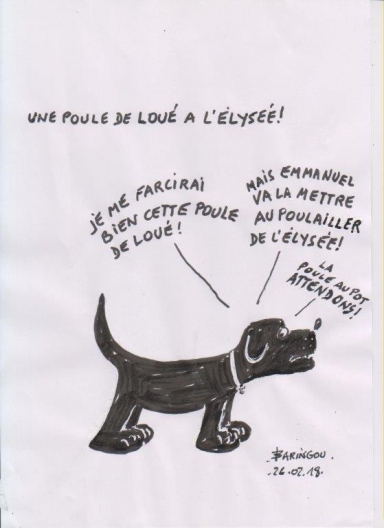 UNE POULE DE LOUÉ A L'ÉLYSEÉ!
JE ME FARCIRAI
BIEN CETTE POULE
DE LOUÉ!
MAIS EMMANUEL
VA LA METTRE
AU POULAILLER
DE L'ÉLYSÉE!
LA
POULE AU POT
ATTENDONS!
BARINGOU.
.26.02.18.